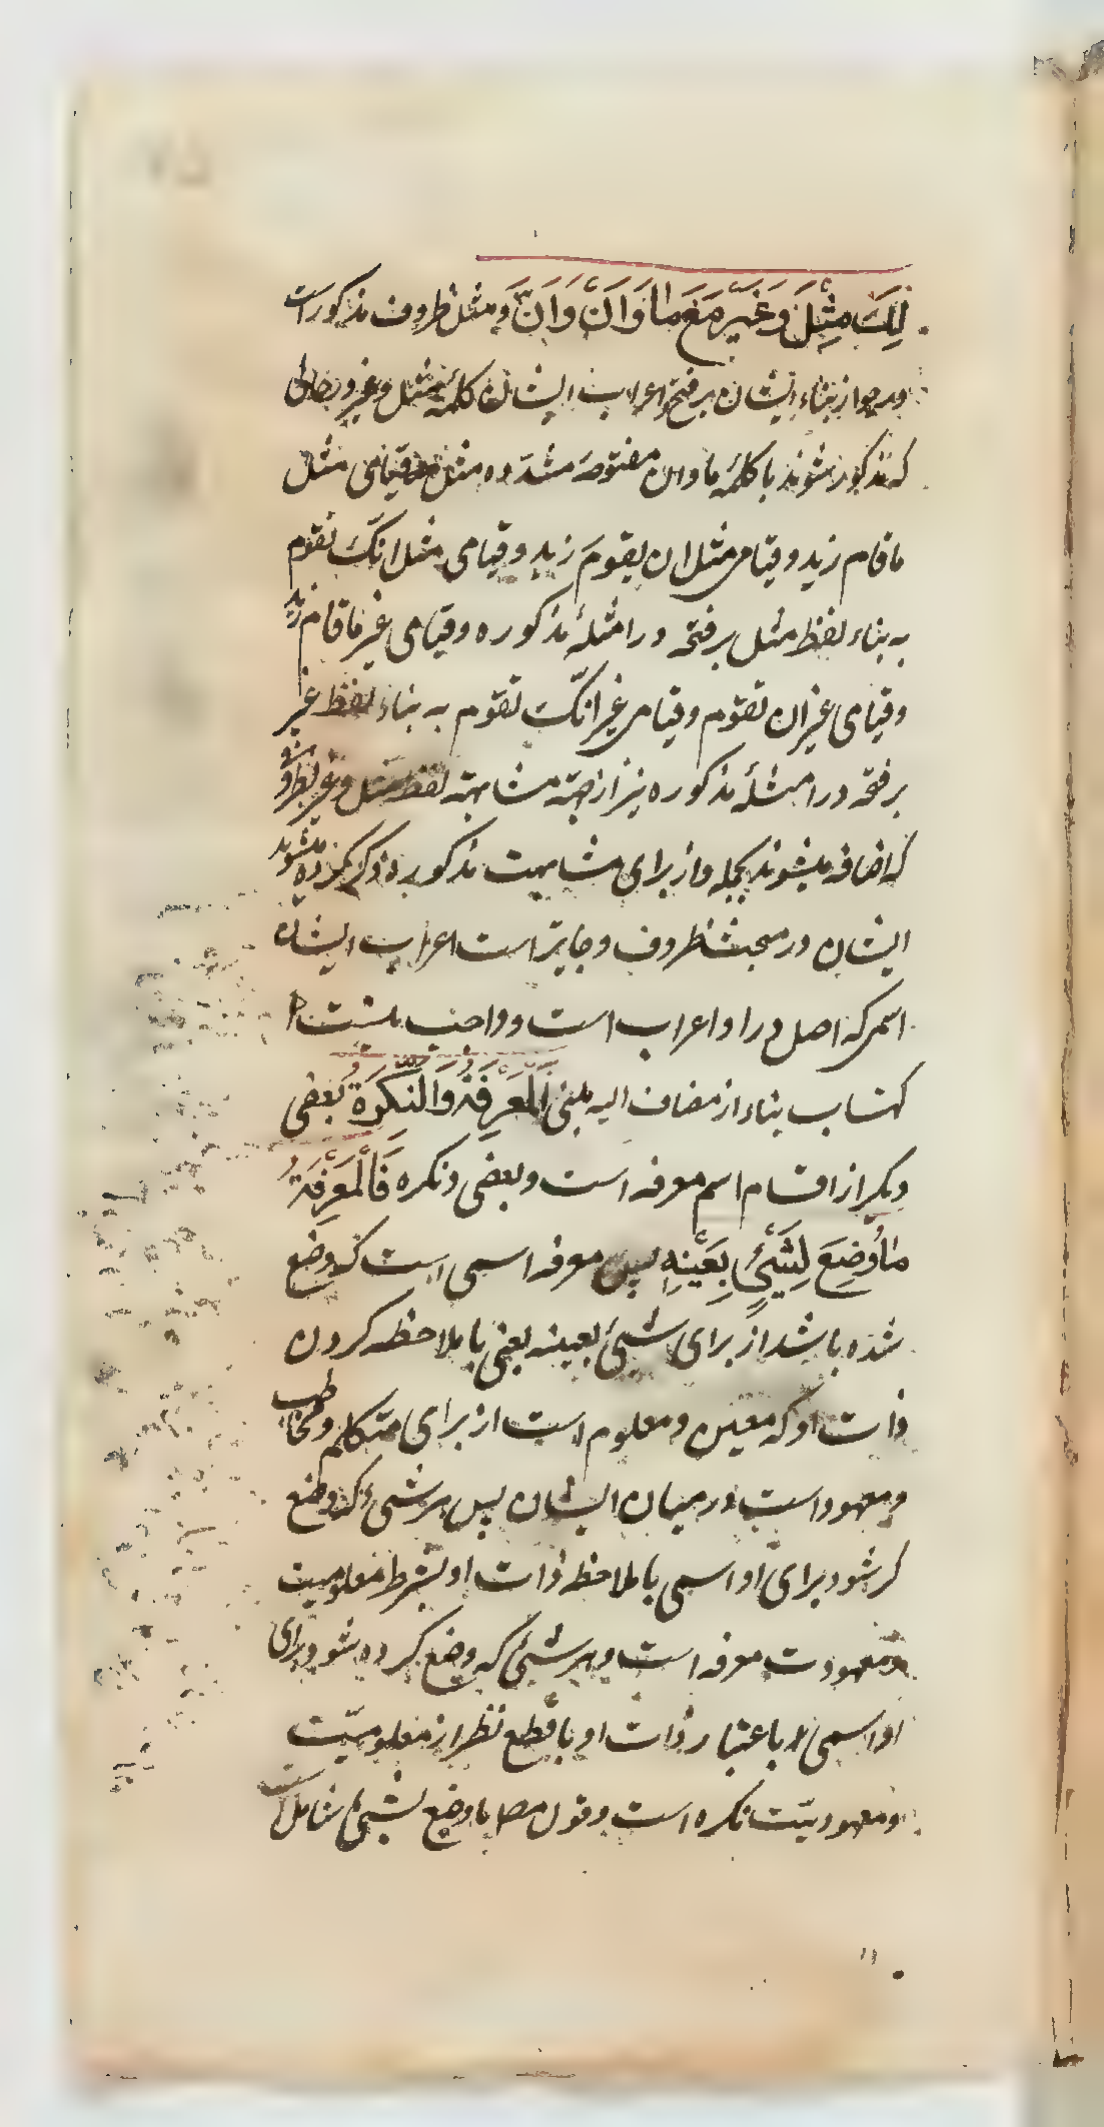 لِكَ مِثْلَ وَغَيْرَ مَعَ مَا وَاَنْ وَاَنَّ و مثل ظروف مذكور است
در جواز بناء ايشان بر فتح و اعراب ايشان كلمهٔ مثل و غير در حالى
كه مذكور شوند با كلمهٔ ما و ان مفتوحه مشدّده مثل قيامى مثل
ما قام زيد و قيامى مثل ان يقومَ زيد و قيامى مثل انّكَ تقوم
به بناء لفظ مثل بر فتحه در امثلهٔ مذكوره و قيامى غير ما قام زيد
و قيامى غير ان تقوم و قيامى غير انّك تقوم به بناء لفظ غير
بر فتحه در امثلهٔ مذكوره نيز از جهة مشابهة لفظ مثل و غير بظروف
كه اضافه ميشوند بجمله و از براى مشابهت مذكوره ذكر كرده ميشوند
ايشان در مبحث ظروف و جايز است اعراب ايشان
اسمى كه اصل در او اعراب است و واجب نيست
كتساب بناء از مضاف اليه مبنى اَلْمَعْرِفَةُ وَالنَّكِرَةُ بعضى
ديگر از اقسام اسم معرفه است و بعضى نكره فَالْمَعْرِفَةُ
مَا وُضِعَ لِشَيْءٍ بِعَيْنِهِ پس معرفه اسمى است كه وضع
شده باشد از براى شيئ بعينه يعنى با ملاحظه كردن
ذات او كه معين و معلوم است از براى متكلم و مخاطب
و معهود است در ميان ايشان پس هر شيئ كه وضع
كر شود براى او اسمى با ملاحظه ذات او بشرط معلوميت
و معهودت معرفه است و هر شيئ كه وضع كرده شود براى
او اسمى باعتبار ذات او با قطع نظر از معلوميّت
و معهوديّت نكره است و قول مص ما وضع لشيئ شامل است